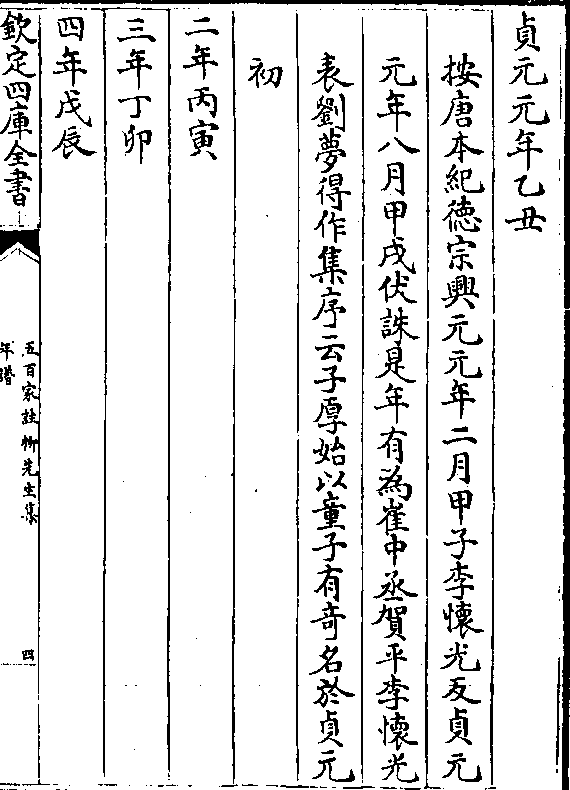 貞元元年乙丑
按唐本紀德宗興元元年二月甲子李懷光反貞元
元年八月甲戌伏誅是年有為崔中丞賀平李懷光
表劉夢得作集序云子厚始以童子有奇名於貞元
初
二年丙寅
三年丁卯
四年戊辰
欽定四庫全書
五百家註柳先生集
年譜
四